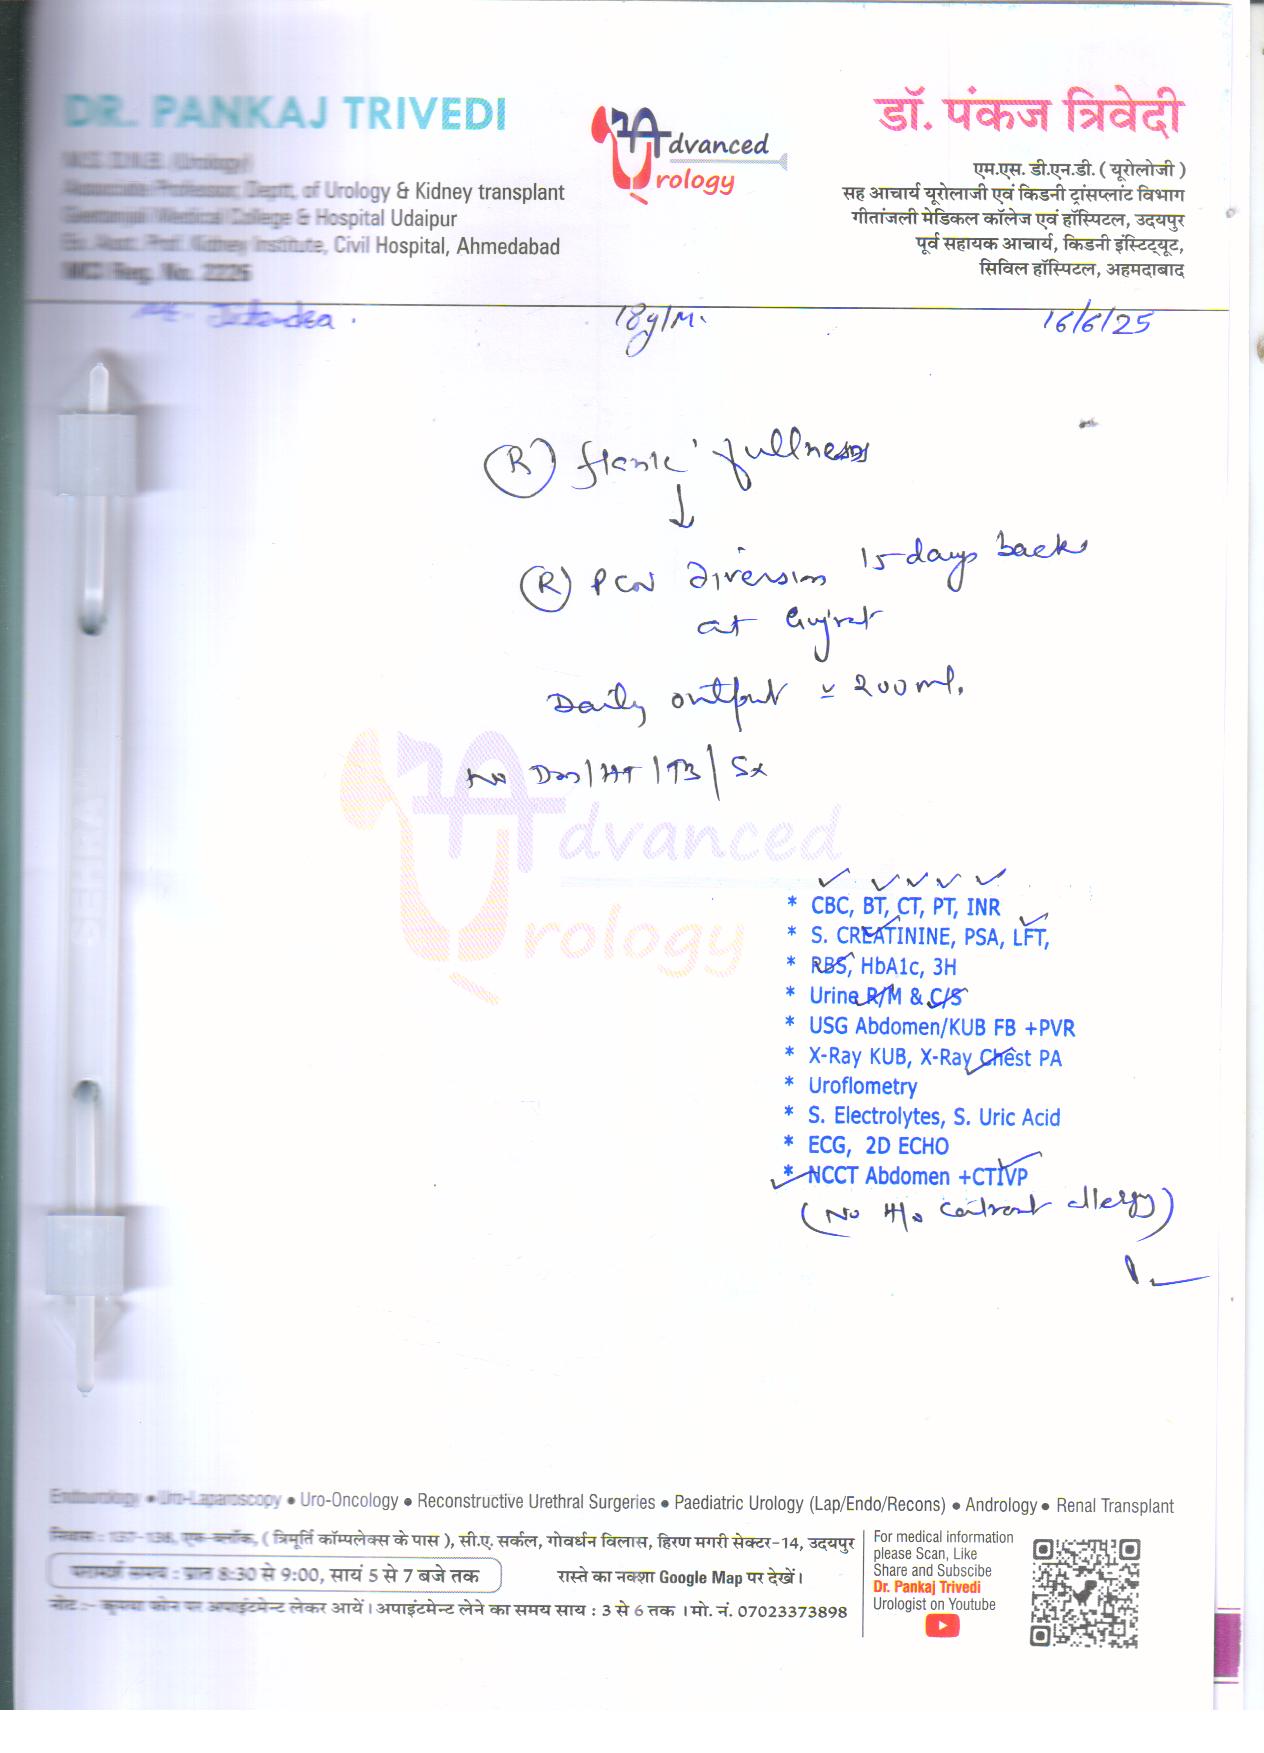 DR. PANKAJ TRIVEDI
M.S. D.N.B. (Urology)
Associate Professor, Deptt. of Urology & Kidney transplant
Geetanjali Medical College & Hospital Udaipur
Ex. Asst. Prof. Kidney Institute, Civil Hospital, Ahmedabad
MCI Reg. No. 2226
Advanced
Urology
डॉ. पंकज त्रिवेदी
एम.एस. डी.एन.डी. ( यूरोलोजी )
सह आचार्य यूरोलाजी एवं किडनी ट्रांसप्लांट विभाग
गीतांजली मेडिकल कॉलेज एवं हॉस्पिटल, उदयपुर
पूर्व सहायक आचार्य, किडनी इंस्टिट्यूट,
सिविल हॉस्पिटल, अहमदाबाद
Mr. Jitendra. 18y/M. 16/6/25
(R) flank fullness
↓
(R) PCN diversion 15 days back
at Gujrat
Daily output ≃ 200ml.
No Dm/HT/TB/Sx
Advanced
Urology
* CBC, BT, CT, PT, INR
* S. CREATININE, PSA, LFT,
* RBS, HbA1c, 3H
* Urine R/M & C/S
* USG Abdomen/KUB FB +PVR
* X-Ray KUB, X-Ray Chest PA
* Uroflometry
* S. Electrolytes, S. Uric Acid
* ECG, 2D ECHO
* NCCT Abdomen +CTIVP
(No H/o contrast allergy)
Endourology ● Uro-Laparoscopy ● Uro-Oncology ● Reconstructive Urethral Surgeries ● Paediatric Urology (Lap/Endo/Recons) ● Andrology ● Renal Transplant
निवास : 137-138, एफ-ब्लॉक, ( त्रिमूर्ति कॉम्पलेक्स के पास ), सी.ए. सर्कल, गोवर्धन विलास, हिरण मगरी सेक्टर-14, उदयपुर
परामर्श समय : प्रात 8:30 से 9:00, सायं 5 से 7 बजे तक रास्ते का नक्शा Google Map पर देखें।
नोट :- कृपया फोन पर अपाइंटमेन्ट लेकर आयें। अपाइंटमेन्ट लेने का समय साय : 3 से 6 तक । मो. नं. 07023373898
For medical information
please Scan, Like
Share and Subscibe
Dr. Pankaj Trivedi
Urologist on Youtube